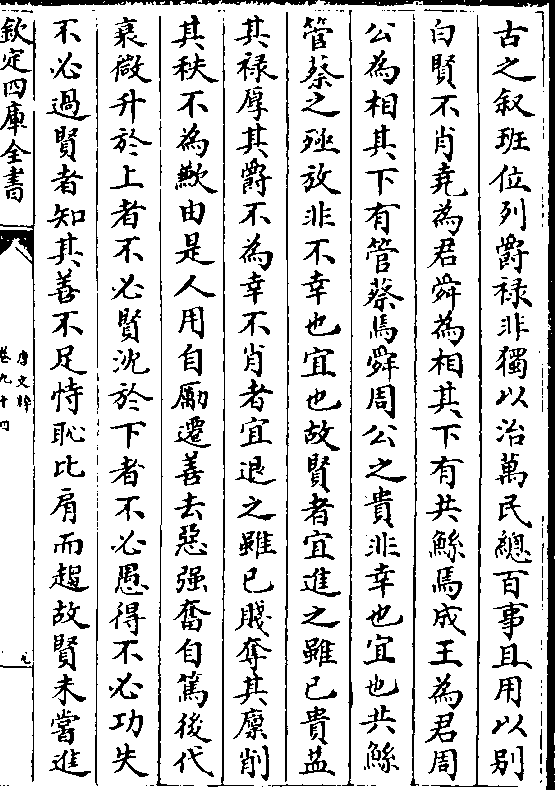 古之叙班位列爵禄非獨以治萬民總百事且用以别
白賢不肖堯為君舜為相其下有共鯀焉成王為君周
公為相其下有管蔡焉舜周公之貴非幸也宜也共鯀
管蔡之殛放非不幸也宜也故賢者宜進之雖已貴益
其禄厚其爵不為幸不肖者宜退之雖已賤奪其廪削
其秩不為歉由是人用自勵遷善去惡强奮自篤後代
衰微升於上者不必賢沈於下者不必愚得不必功失
不必過賢者知其善不足恃恥比肩而趨故賢未嘗進
欽定四庫全書
唐文粹
卷九十四
九